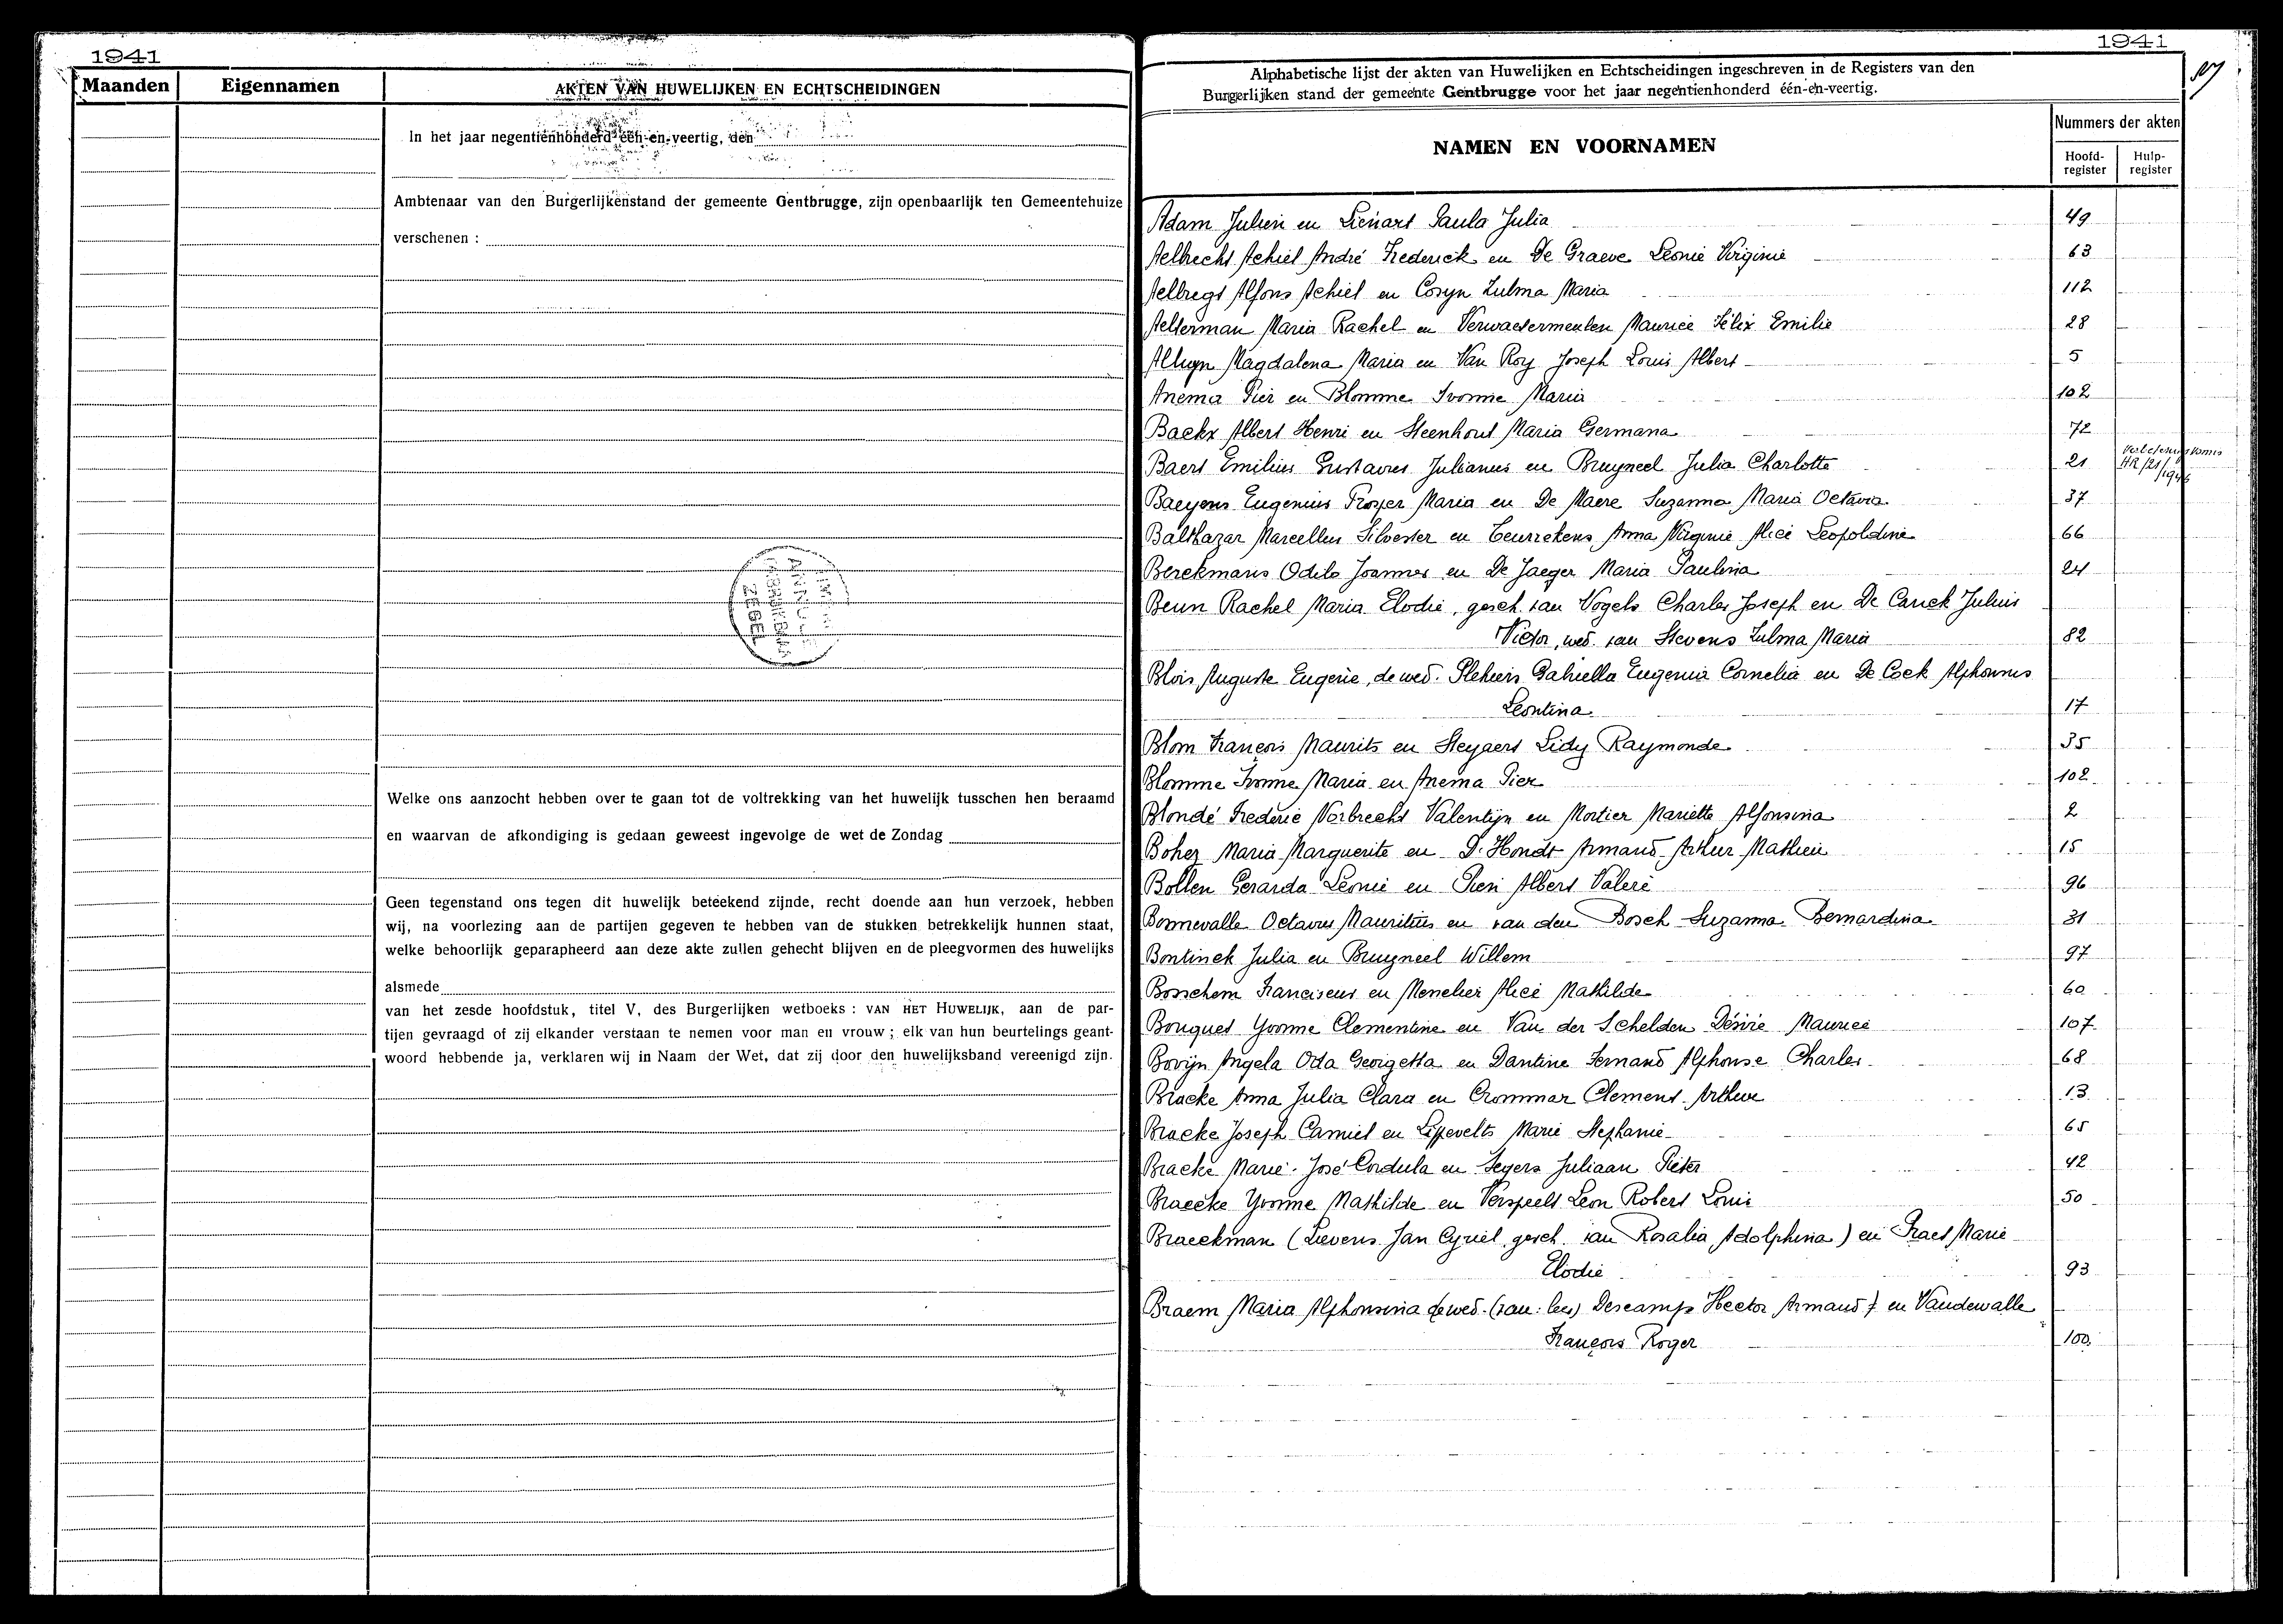 1941
Maanden
Eigennamen
AKTEN VAN HUWELIJKEN EN ECHTSCHEIDINGEN
In het jaar negentienhonderd één-en-veertig, den
Ambtenaar van den Burgerlijkenstand der gemeente Gentbrugge, zijn openbaarlijk ten Gemeentehuize
verschenen :
Welke ons aanzocht hebben over te gaan tot de voltrekking van het huwelijk tusschen hen beraamd
en waarvan de afkondiging is gedaan geweest ingevolge de wet de Zondag
Geen tegenstand ons tegen dit huwelijk beteekend zijnde, recht doende aan hun verzoek, hebben
wij, na voorlezing aan de partijen gegeven te hebben van de stukken betrekkelijk hunnen staat,
welke behoorlijk geparapheerd aan deze akte zullen gehecht blijven en de pleegvormen des huwelijks
alsmede
van het zesde hoofdstuk, titel V, des Burgerlijken wetboeks : VAN HET HUWELIJK, aan de par-
tijen gevraagd of zij elkander verstaan te nemen voor man en vrouw ; elk van hun beurtelings geant-
woord hebbende ja, verklaren wij in Naam der Wet, dat zij door den huwelijksband vereenigd zijn.
1941
Alphabetische lijst der akten van Huwelijken en Echtscheidingen ingeschreven in de Registers van den
Burgerlijken stand der gemeente Gentbrugge voor het jaar negentienhonderd één-en-veertig.
NAMEN EN VOORNAMEN
Nummers der akten
Hoofd-register
Hulp-register
Adam Julien en Lienart Paula Julia 49
Aelbrecht Achiel André Frederick en De Graeve Leonie Virginie 63
Aelbregt Alfons Achiel en Cosyn Zulma Maria 112
Aelterman Maria Rachel en Verwaetermeulen Maurice Félix Emilie 28
Alluyn Magdalena Maria en Van Roy Joseph Louis Albert 5
Anema Pier en Blomme Ivonne Maria 102
Baekx Albert Henri en Steenhout Maria Germana 72
Baert Emilius Gustavus Julianus en Bruyneel Julia Charlotte 21
Baeyens Eugenius Prosper Maria en De Maere Suzanna Maria Octavia 37
Balthazar Marcellus Silvester en Anna Virginie Alice Leopoldine 66
Berckmans Odilo Joannes en De Jaeger Maria Paulina 24
Beun Rachel Maria Elodie, gesch. van Vogels Charles Joseph en De Canck Julius
Victor, wed. van Stevens Zulma Maria 82
Blois Auguste Eugenie, de wed. Gabriella Eugenia Cornelia en De Cock Alphonsus
Leontina 17
Blom François Maurits en Steyaert Lidy Raymonde 35
Blomme Ivonne Maria en Anema Pier 102
Blondé Frederic Norbrecht Valentijn en Mortier Mariette Alfonsina 2
Bohez Maria Marguerite en D'Hondt Armand Arthur Mathieu 15
Bollen Gerarda Leonie en Albert Valeré 96
Bonnevalle Octavus Mauritius en van den Bosch Suzanna Bernardina 31
Bontinck Julia en Bruyneel Willem 97
Bosschem Franciscus en Alice Mathilde 60
Bouquet Yvonne Clementine en Van der Schelden Désiré Maurice 107
Bovijn Angela Oda Georgetta en Dantine Fernand Alphonse Charles 68
Bracke Anna Julia Clara en Crommar Clement Arthur 13
Bracke Joseph Camiel en Lippevelts Marie Stephanie 65
Bracke Marie-José Cordula en Segers Juliaan Pieter 42
Braecke Yvonne Mathilde en Verspeelt Leon Robert Louis 50
Braeckman (Lievens Jan Cyriel, gesch. van Rosalia Adolphina) en Praet Marie
Elodie 93
Braem Maria Alphonsina de wed. Descamps Hector Armand) en Vandewalle
François Roger 100